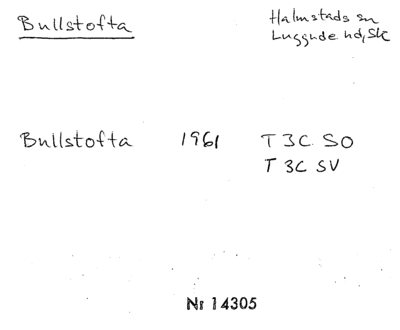 Bullstofta
Halmstads sn
Luggude hd, Sk
Bullstofta 1961 T 3C SO
T 3C SV
Nr 14305